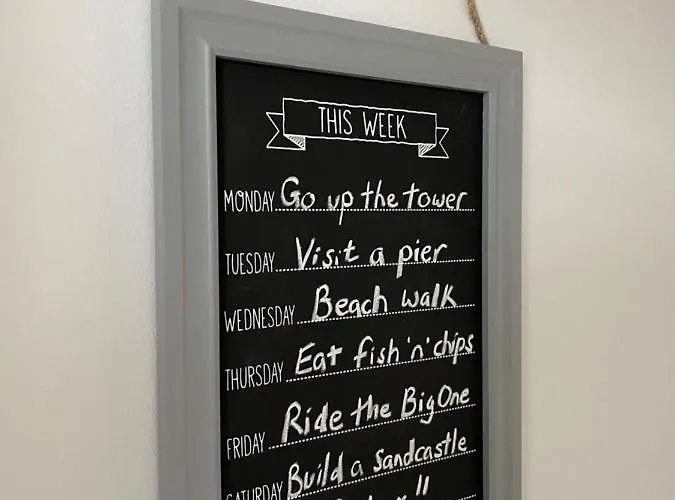 THIS WEEK
MONDAY Go up the tower
TUESDAY Visit a pier
WEDNESDAY Beach walk
THURSDAY Eat fish 'n' chips
FRIDAY Ride the Big One
SATURDAY Build a sandcastle